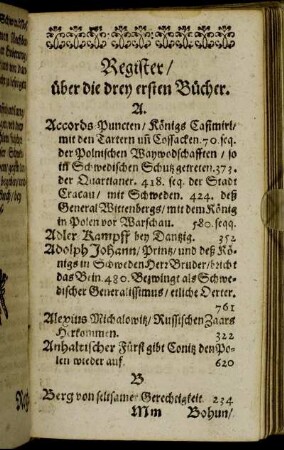 Register/
über die drey ersten Bücher.
A.
Accords-Puncten/ Königs Casimiri/
mit den Tartern uñ Cossacken. 70. seq.
der Polnischen Waywodschafften / so
in Schwedischen Schutz getreten. 373.
der Quartianer. 418. seq. der Stadt
Cracau / mit Schweden. 424. deß
General Wittenbergs/ mit dem König
in Polen vor Warschau. 580. seqq.
Adler Kampff bey Dantzig. 352
Adolph Johann/ Printz/ und deß Kö-
nigs in Schweden Herr Bruder/ bricht
das Bein. 480. Bezwingt als Schwe-
discher Generalissimus / etliche Oerter.
761
Alexius Michalowitz/ Russischen Zaars
Herkommen. 322
Anhaltischer Fürst gibt Conitz den Po-
len wieder auf. 620
B
Berg von seltsamer Gerechtigkeit. 234
Mm Bohun/